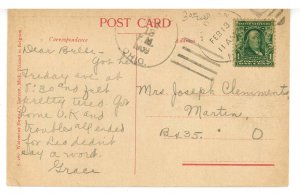 POST CARD
Correspondence
FEB 13
11 A
1909
OHIO
Dear Belle:-
Got here
Friday eve. at
5:30 and felt
pretty tired. Got
home O.K. and
troubles all ended
for Leo didn't
say a word.
Grace
Mrs. Joseph Clements
Martins,
Bx 35. O